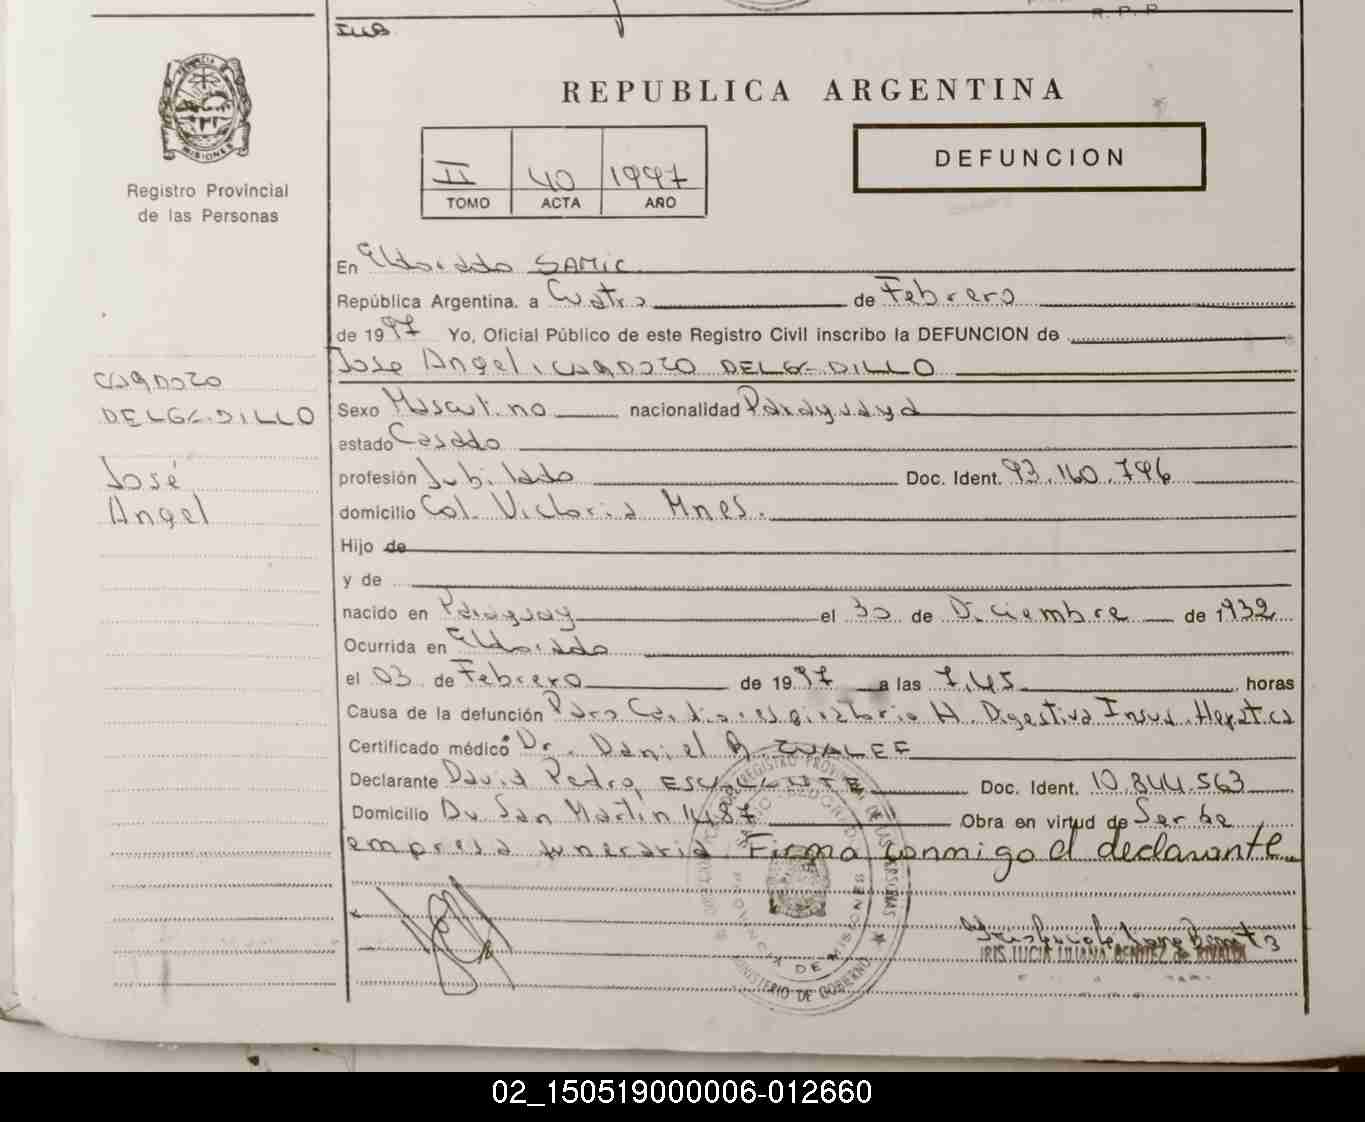 R. P. P
REPUBLICA ARGENTINA
DEFUNCION
II 40 1997
TOMO ACTA AÑO
MISIONES
Registro Provincial
de las Personas
En Eldorado SAMIC
República Argentina. a Cuatro de Febrero
de 1997 Yo, Oficial Público de este Registro Civil inscribo la DEFUNCION de
Jose Angel, CARDOZO DELGADILLO
CARDOZO
DELGADILLO
José
Angel
Sexo Masculino nacionalidad Paraguaya
estado Casado
profesión Jubilado Doc. Ident. 93.160.796
domicilio Col. Victoria Mnes.
Hijo de
y de
nacido en Paraguay el 30 de Diciembre de 1932
Ocurrida en Eldorado
el 03 de Febrero de 1997 a las 7,45 horas
Causa de la defunción Paro Cardiorespiratorio H. Digestiva Insuf. Hepatica
Certificado médico Dr. Daniel
Declarante David Pedro ESCALANTE Doc. Ident. 10.844.563
Domicilio Av San Martín 1487 Obra en virtud de Ser de
empresa funeraria. Firma conmigo el declarante
PROVINCIA DE MISIONES
MINISTERIO DE GOBIERNO
IRIS LUCIA LILIANA BENITEZ de
02_150519000006-012660